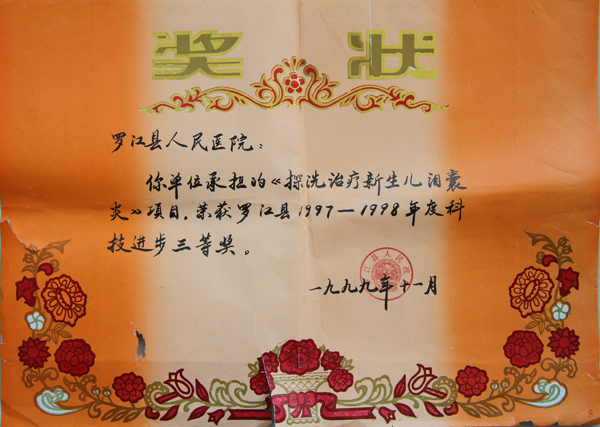 奖 状
罗江县人民医院：
你单位承担的《探洗治疗新生儿泪囊
炎》项目，荣获罗江县1997—1998年度科
技进步三等奖。
一九九九年十一月